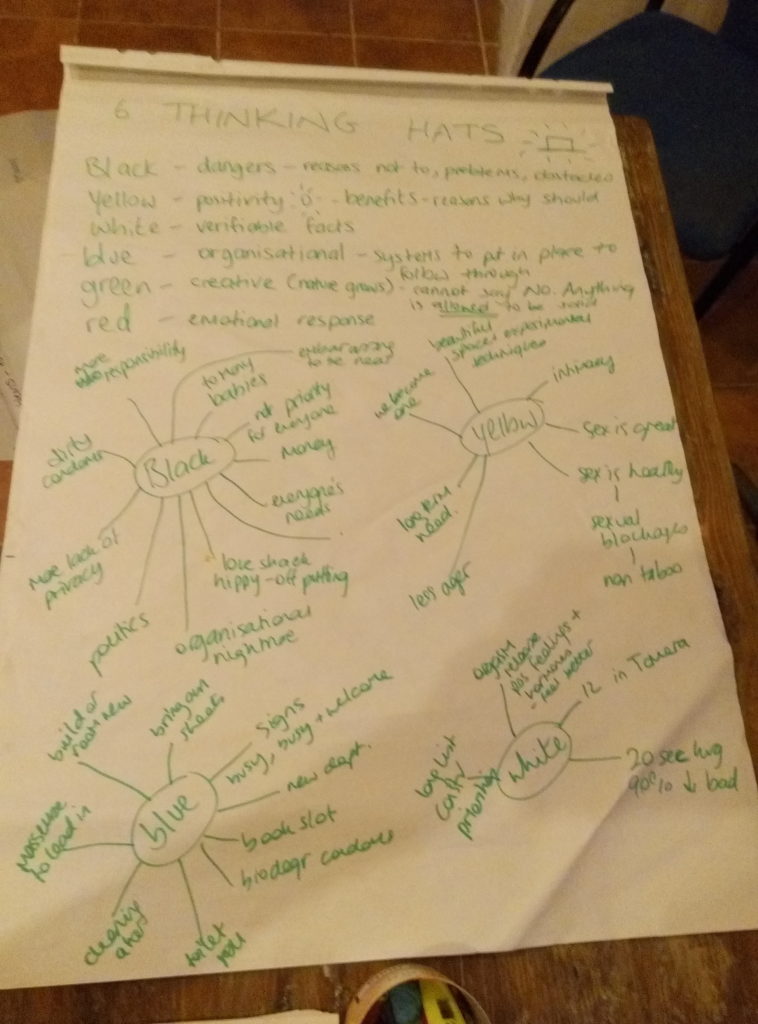 6 THINKING HATS
Black - dangers - reasons not to, problems, obstacles
Yellow - positivity - benefits - reasons why should
white - verifiable facts
blue - organisational - systems to put in place to
follow through
green - creative (native grows) - cannot say NO. Anything
is allowed to be said
red - emotional response
more
responsibility
to many
babies
embarrassing
to be near
not priority
for everyone
money
everyone's
needs
love shack
hippy - off putting
organisational
nightmare
politics
more lack of
privacy
dirty
condoms
Black
beautiful
spaces experimental
techniques
intimacy
sex is great
sex is healthy
sexual
blockages
non taboo
less ager
long term
need.
we become
one
Yellow
build or
new
bring own
sheets
signs
busy, busy + welcome
new dept.
book slot
biodegr condoms
toilet
roll
cleaning
after
masseuse
to lead in
blue
orgasm
release
pos feelings +
hormones
12 in Tamera
20 sec hug
90% ↓ bad
long list
const/
priorities
white